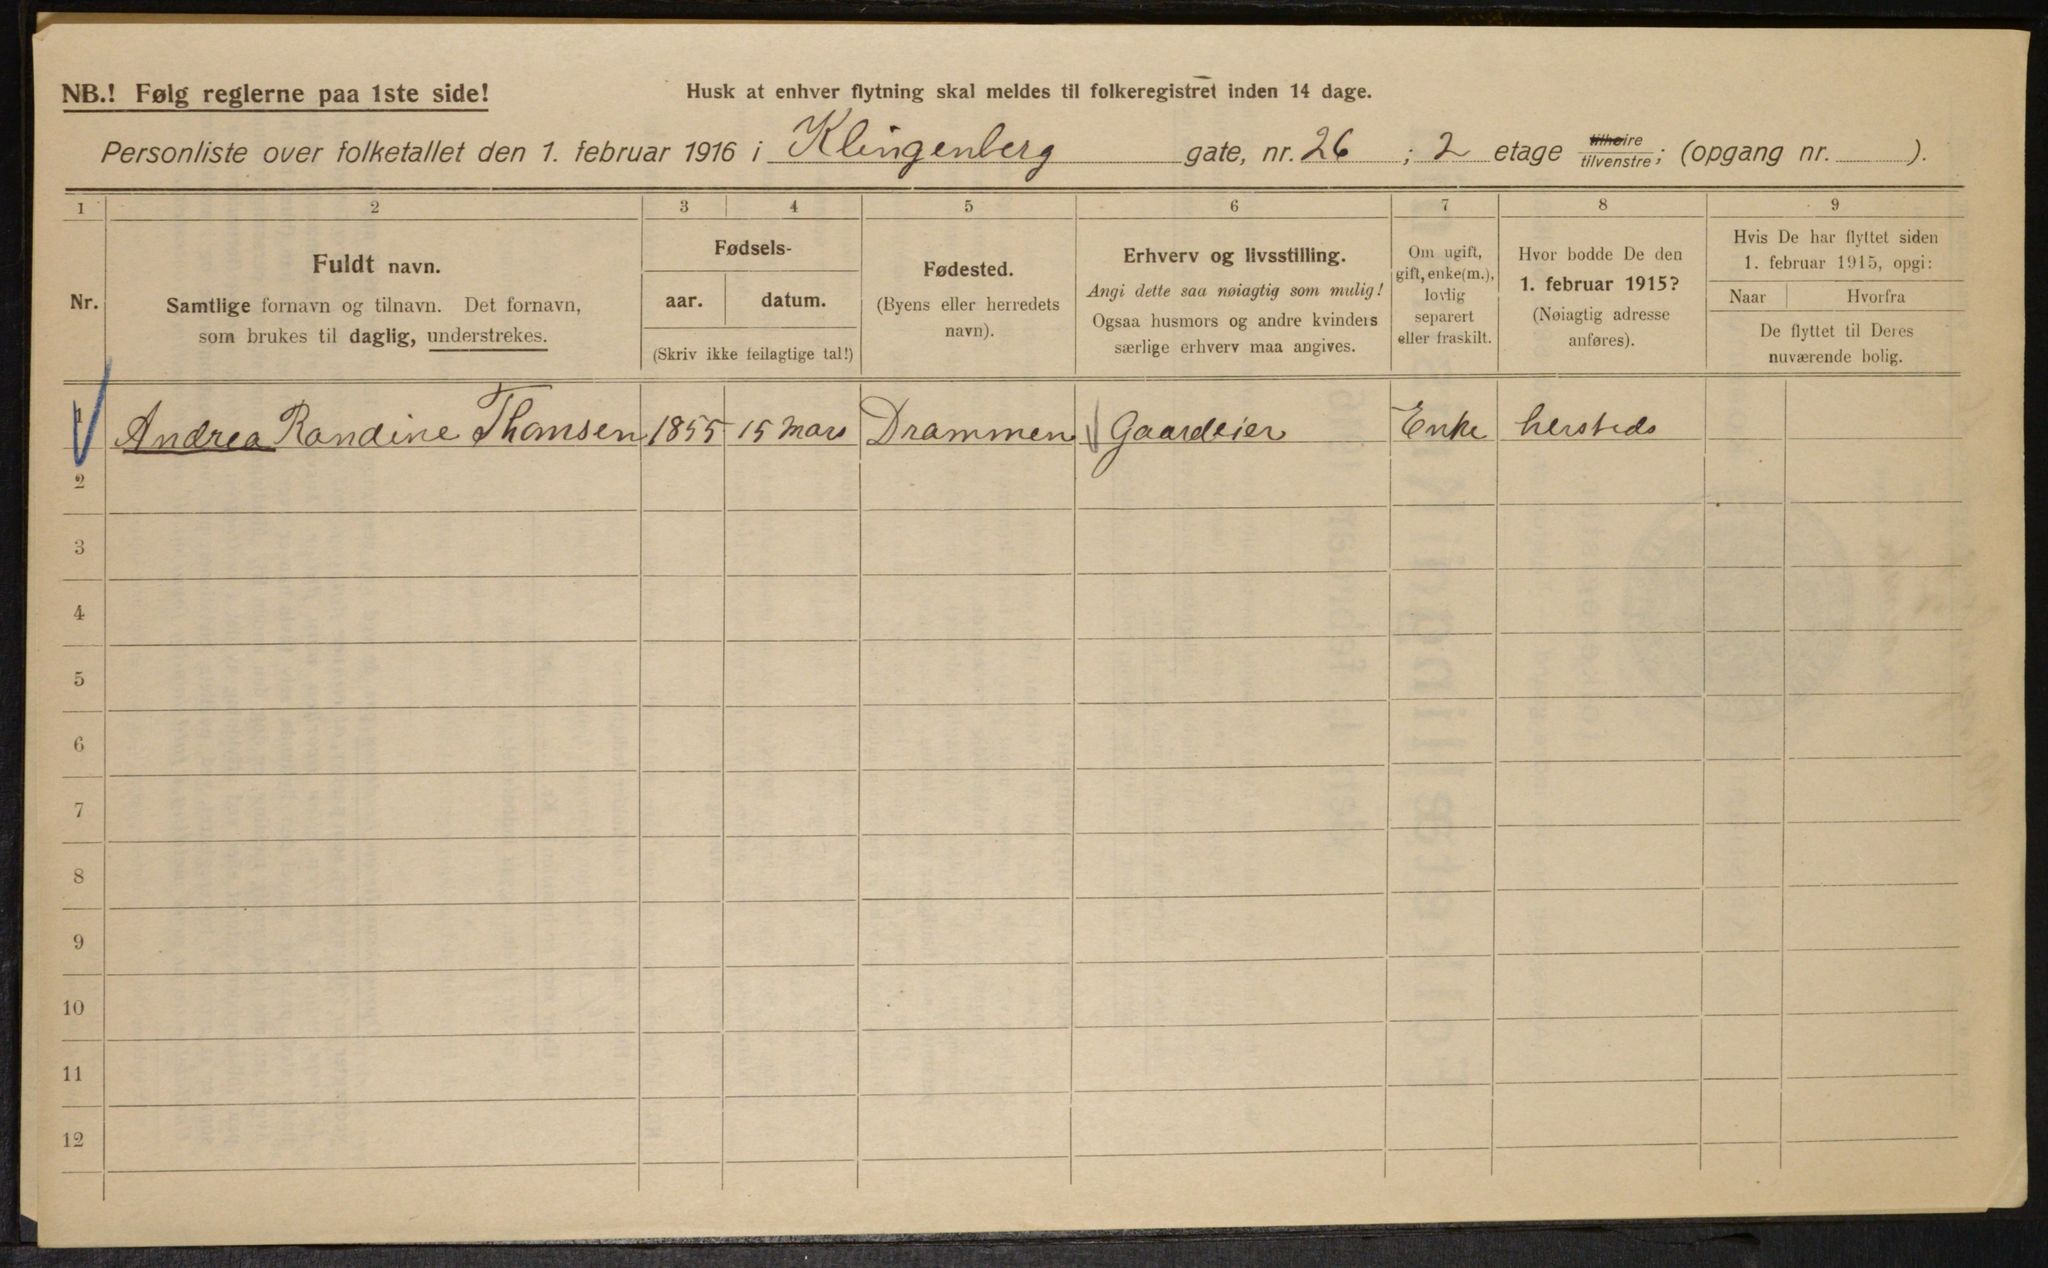 NB.! Følg reglerne paa 1ste side!
Husk at enhver flytning skal meldes til folkeregistret inden 14 dage.
Personliste over folketallet den 1. februar 1916 i Klingenberg gate, nr. 26 ; 2 etage tilhøire tilvenstre; (opgang nr. ).
1 2 3 4 5 6 7 8 9
Nr.
Fuldt navn.
Samtlige fornavn og tilnavn. Det fornavn,
som brukes til daglig, understrekes.
Fødsels-
aar. datum.
(Skriv ikke feilagtige tal!)
Fødested.
(Byens eller herredets
navn).
Erhverv og livsstilling.
Angi dette saa nøiagtig som mulig!
Ogsaa husmors og andre kvinders
særlige erhverv maa angives.
Om ugift,
gift, enke(m.),
lovlig
separert
eller fraskilt.
Hvor bodde De den
1. februar 1915?
(Nøiagtig adresse
anføres).
Hvis De har flyttet siden
1. februar 1915, opgi:
Naar Hvorfra
De flyttet til Deres
nuværende bolig.
1 Andrea Randine Thomsen 1855 15 Mars Drammen Gaardeier Enke hersteds
2
3
4
5
6
7
8
9
10
11
12